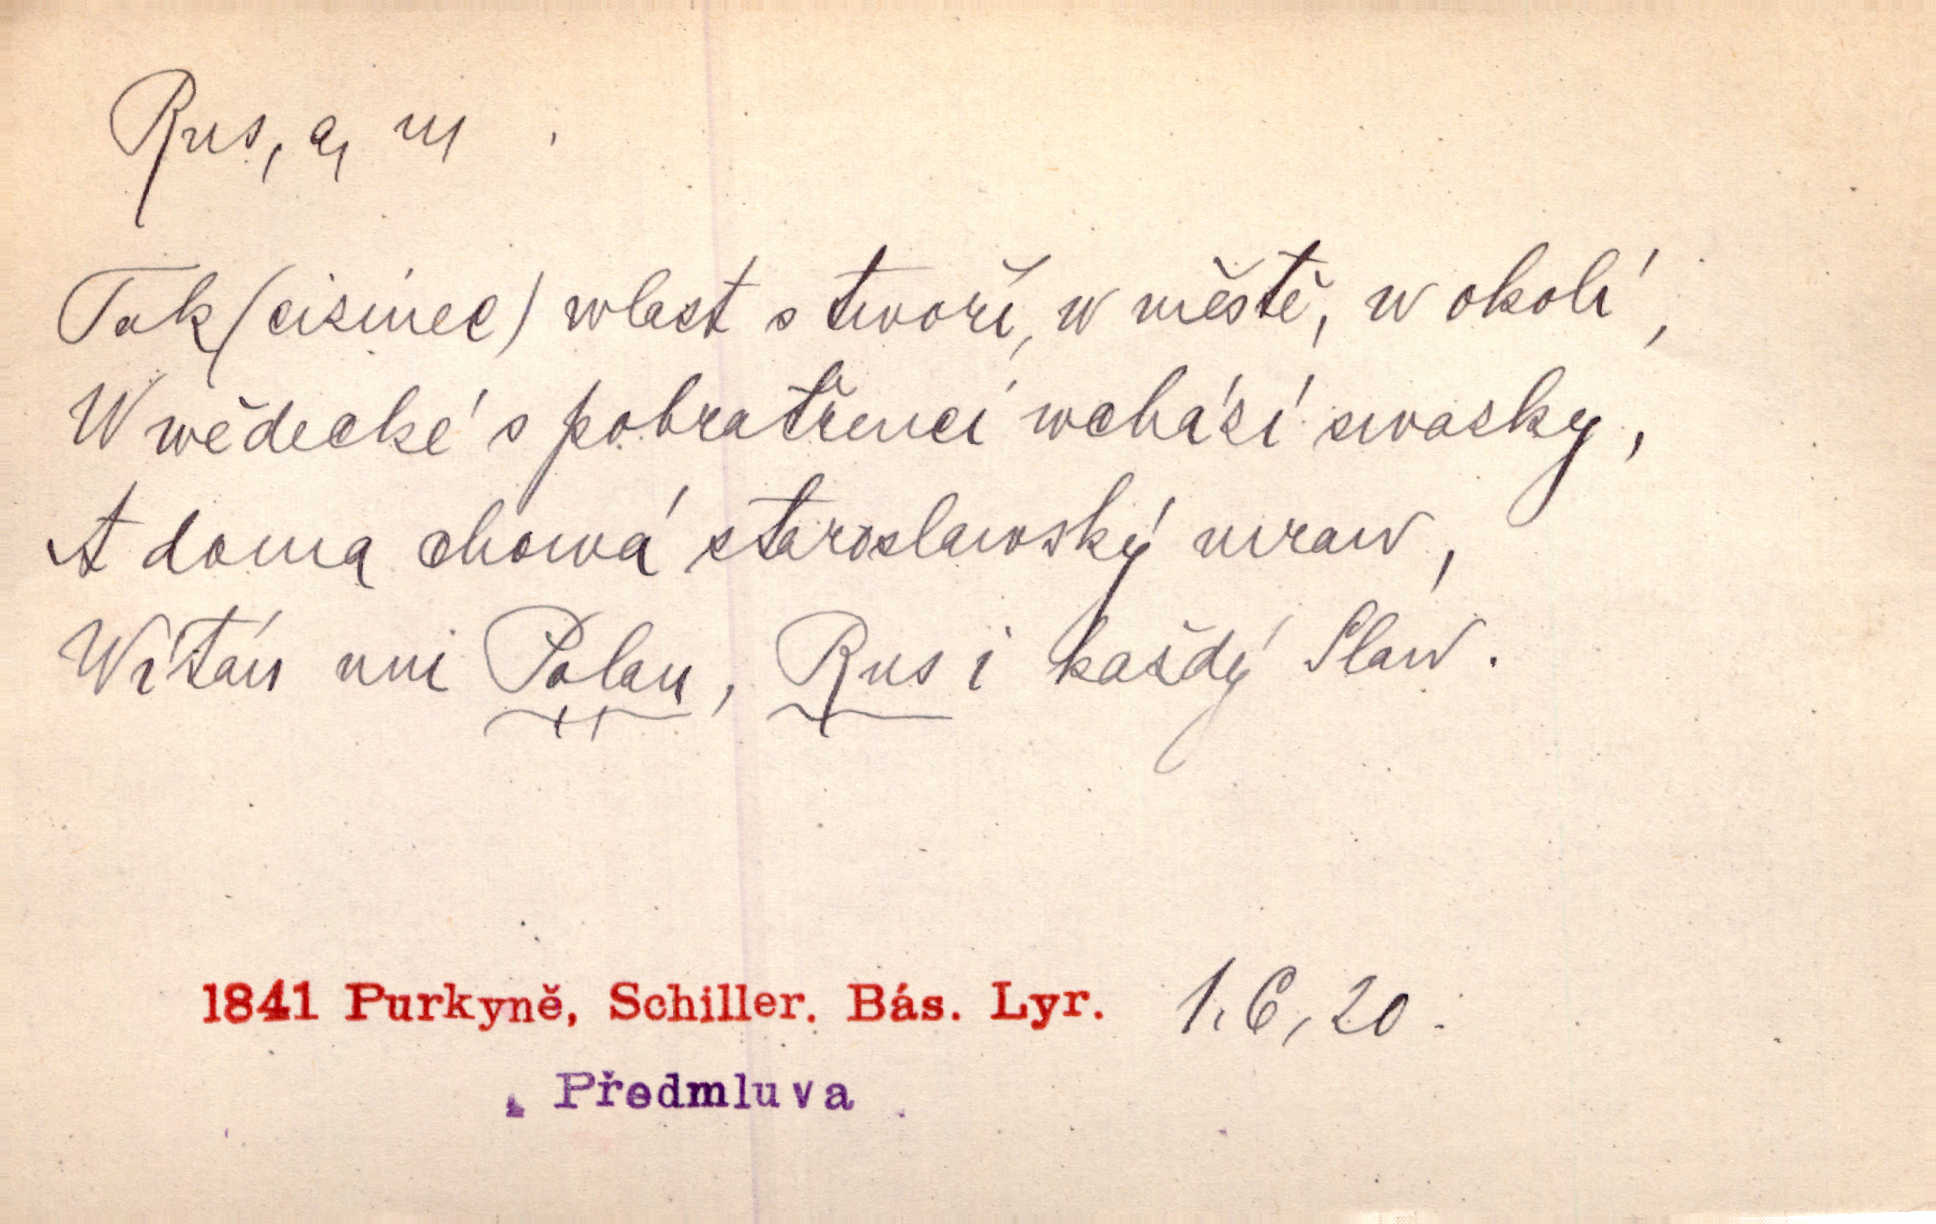 Rus, a, m.
Tak (cizinec) wlast s twoří, w městě, w okolí,
W wědecké s pobratřenci wchází swazky,
A doma chowá staroslawský mraw,
Wítán mi Polan, Rus i každý Slaw.
1841 Purkyně, Schiller. Bás. Lyr. 1.6, 20.
Předmluva